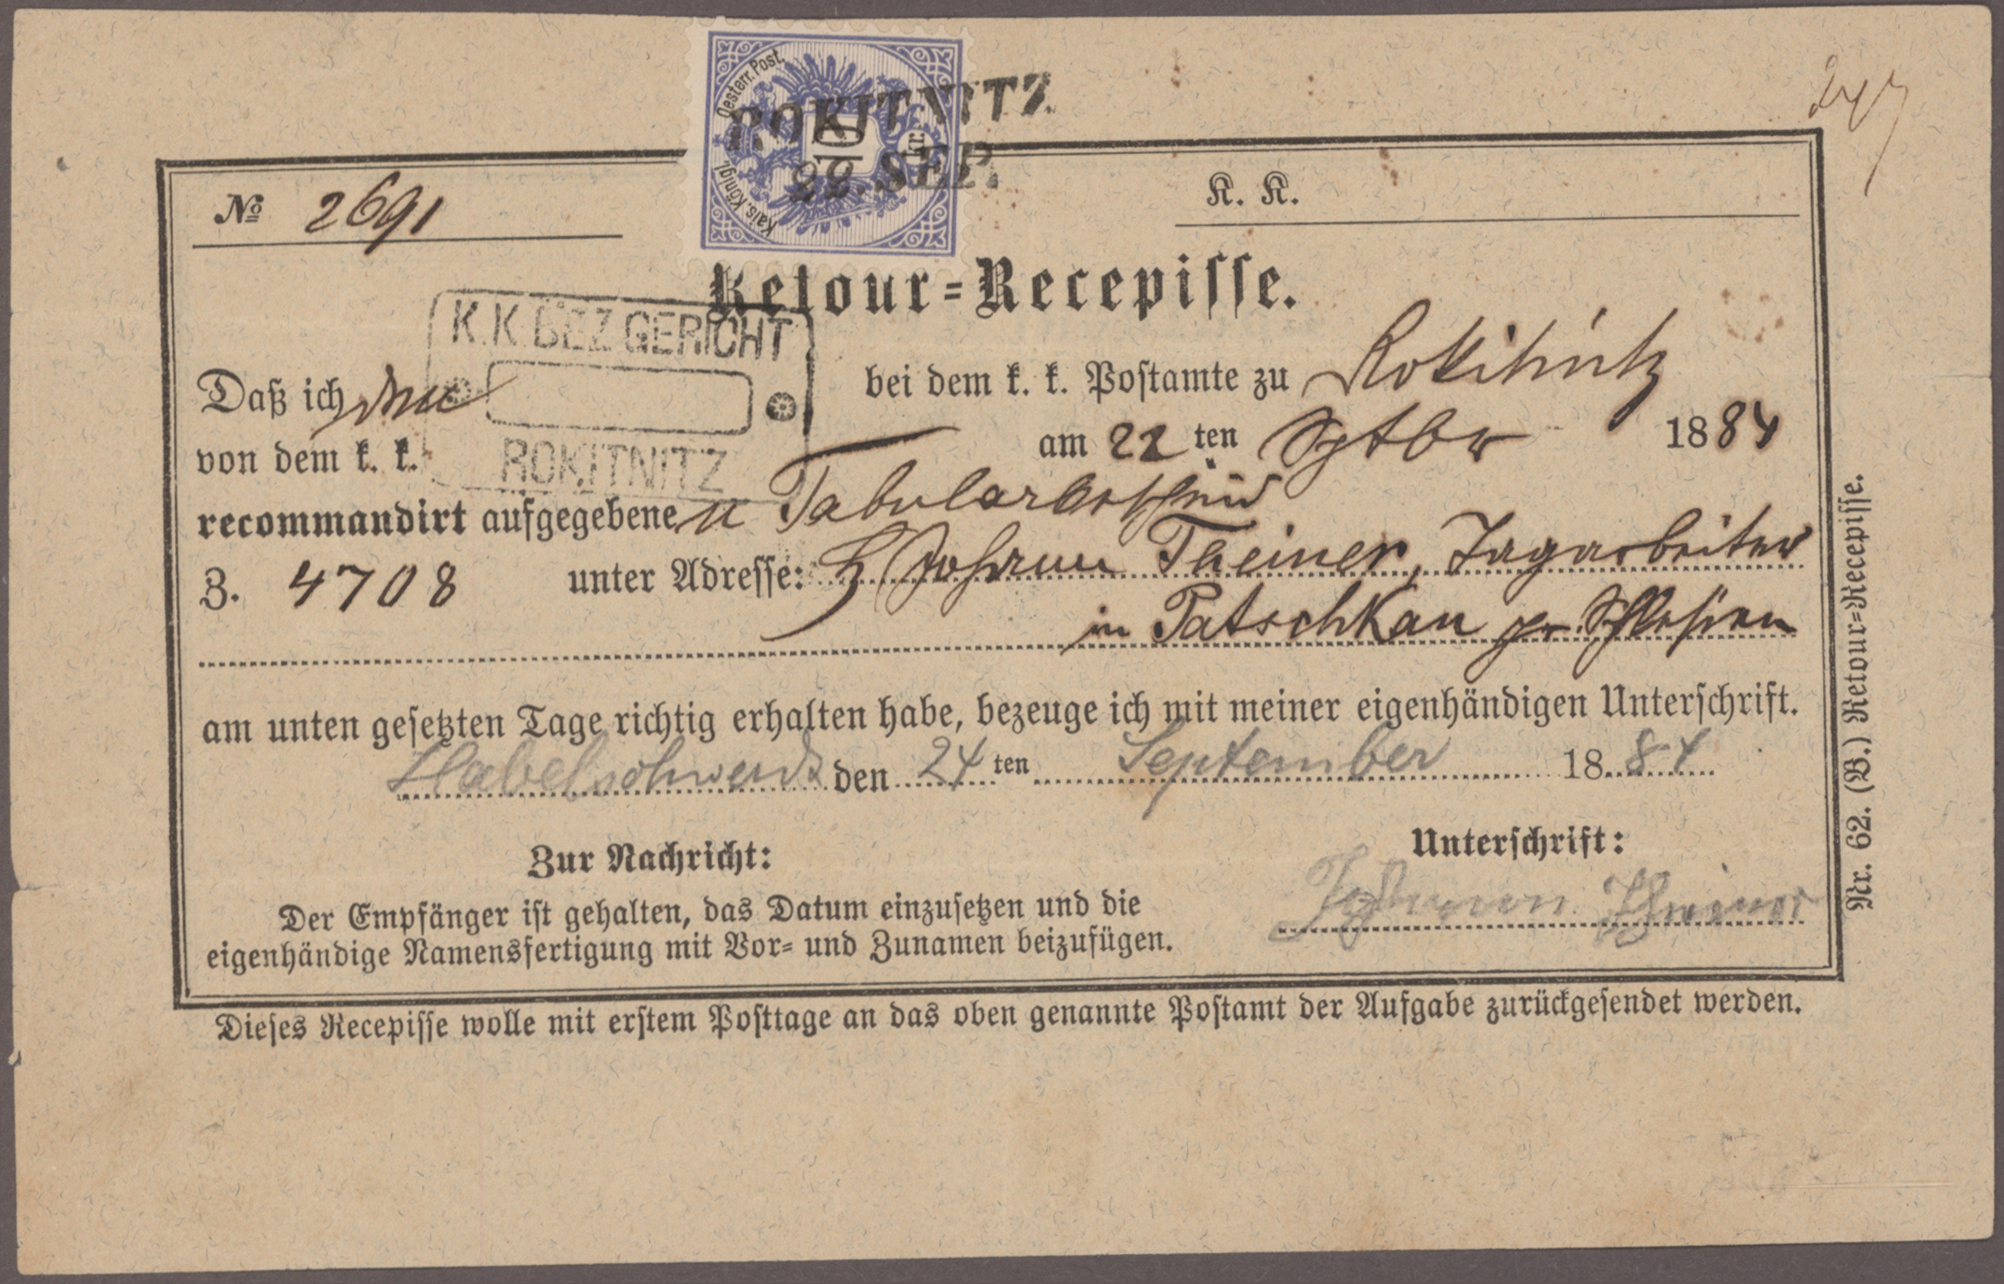 Oesterr. Post.
Kais. Königl.
10
KR.
ROKITNITZ
22. SEP.
№ 2691
K. K.
Retour=Recepisse.
K.K BEZ GERICHT
ROKITNITZ
Daß ich den bei dem k. k. Postamte zu Rokitnitz
von dem k. k. am 22 ten Sptbr 1884
recommandirt aufgegebenen Tabularbescheid
Z. 4708 unter Adresse: Johann Theiner, Tagarbeiter
in Patschkau pr. Schlesien
am unten gesetzten Tage richtig erhalten habe, bezeuge ich mit meiner eigenhändigen Unterschrift.
Habelschwerdt den 24 ten September 1884
Zur Nachricht:
Unterschrift:
Der Empfänger ist gehalten, das Datum einzusetzen und die
eigenhändige Namensfertigung mit Vor= und Zunamen beizufügen.
Johann Theiner
Dieses Recepisse wolle mit erstem Posttage an das oben genannte Postamt der Aufgabe zurückgesendet werden.
Nr. 62. (B.) Retour=Recepisse.